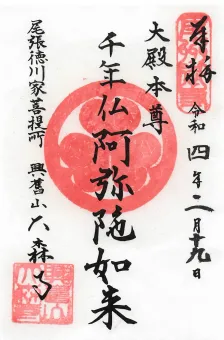 奉拝
令和四年二月十九日
大殿本尊
千年仏阿弥陀如来
尾張徳川家菩提所
興旧山大森寺